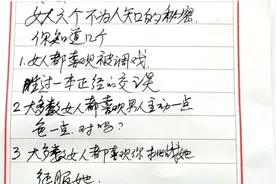 女人六个不为人知的秘密.
你知道几个
1.女人都喜欢被调戏
胜过一本正经的交谈
2 大多数女人都喜欢男人主动一点
色一点.对吗?
3 大多数女人都喜欢你挑战她
征服她